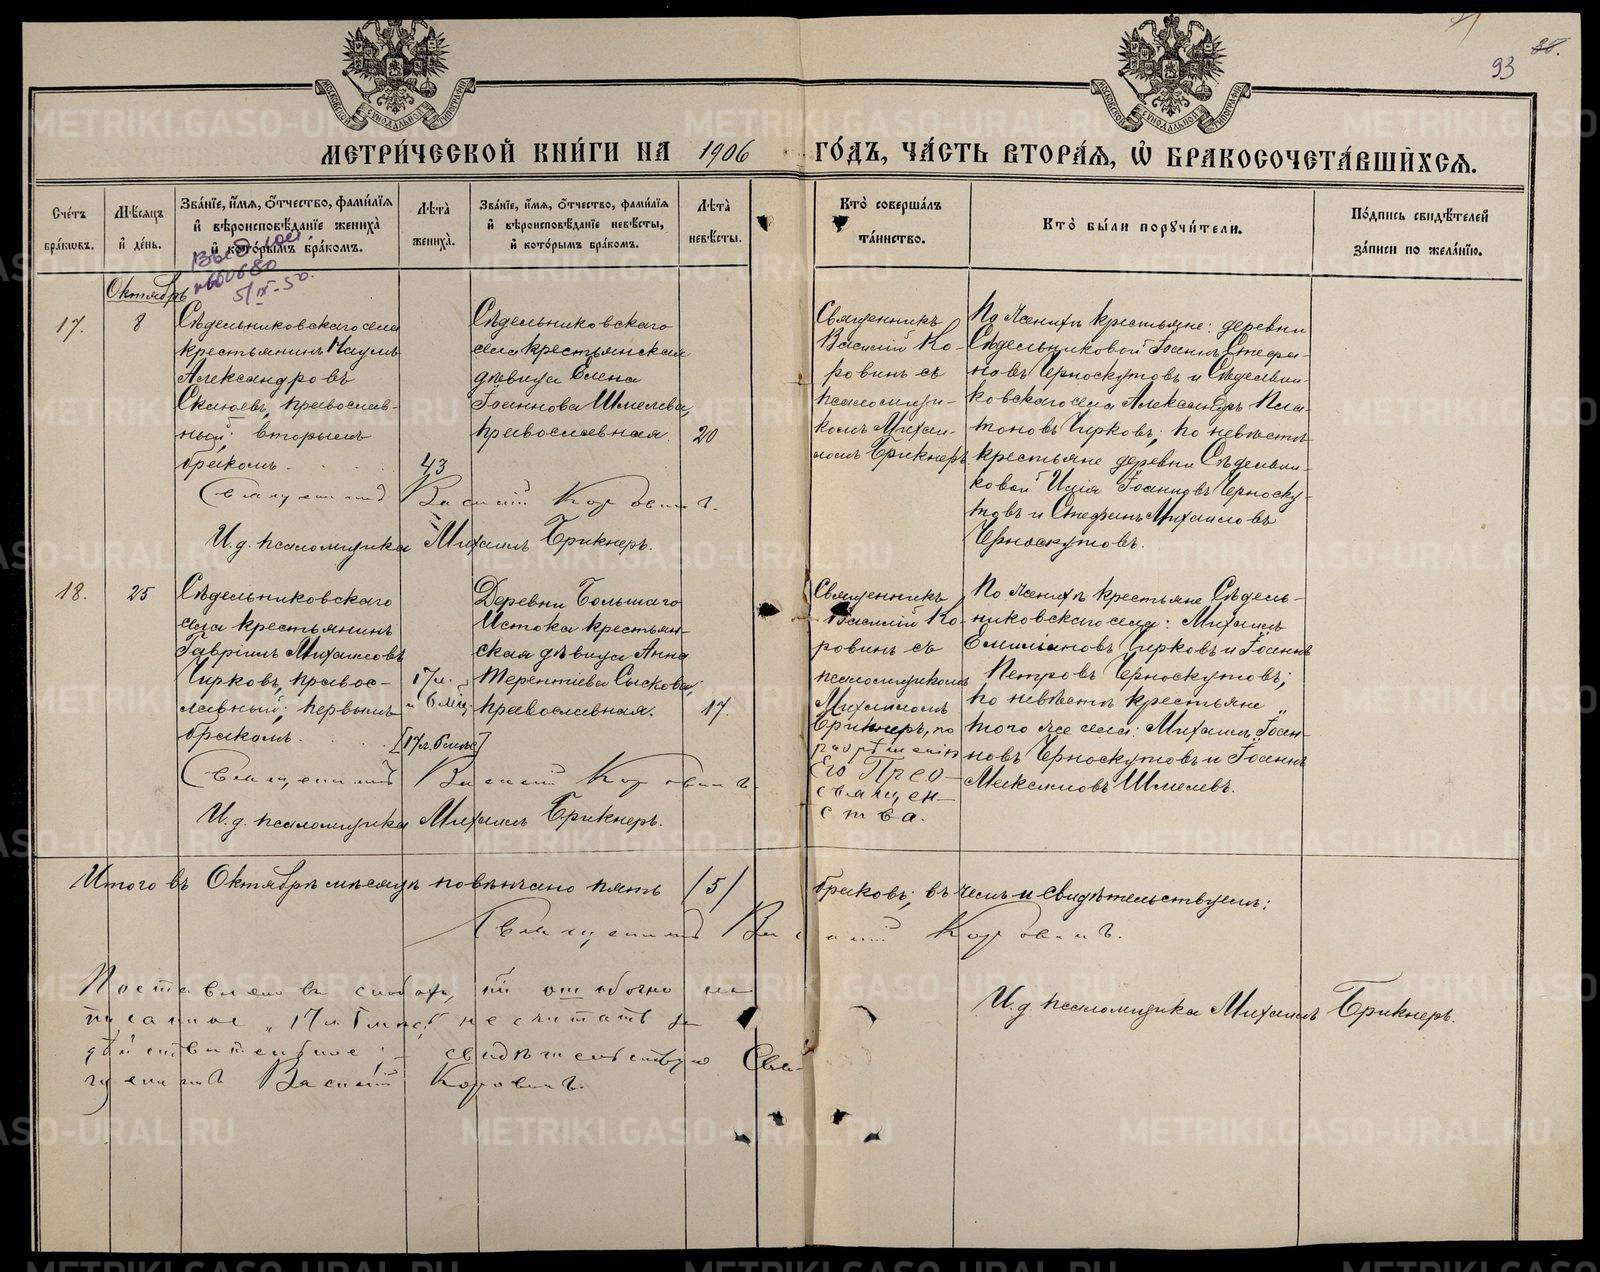 93
МЕТРИ́ЧЕСКОЙ КНИ́ГИ НА 1906 ГО́ДЪ, ЧА́СТЬ ВТОРА́Я, Ѽ БРАКОСОЧЕТА́ВШИХСЯ.
Сче́тъ бра́ковъ.
Мѣ́сяцъ и́ де́нь.
Зва́нїе, и́мя, о́тчество, фами́лїя и́ вѣроисповѣ́данїе жениха̀ и́ кото́рымъ бра́комъ.
Лѣ́та̀ жениха̀.
Зва́нїе, и́мя, о́тчество, фами́лїя и́ вѣроисповѣ́данїе невѣ́сты, и́ кото́рымъ бра́комъ.
Лѣ́та̀ невѣ́сты.
Кто̀ соверша́лъ та́инство.
Кто̀ бы́ли поручи́тели.
По́дпись свидѣ́телей за́писи по жела́нїю.
5/IX-50.
Октябрь
17.
8
Сѣдельниковскаго села
крестьянинъ Наумъ
Александровъ
православ-
ный; вторымъ
бракомъ
43
Сѣдельниковскаго
села крестьянская
дѣвица Елена
Іоаннова Шмелева,
православная.
20
Священникъ
Василій Ко-
ровинъ съ
псаломщи-
комъ Михаи-
ломъ Брикнеръ
По женихѣ крестьяне: деревни
Сѣдельниковой Іоаннъ Стефа-
новъ Черноскутовъ и Сѣдельни-
ковскаго села Александръ Пла-
тоновъ Чирковъ; по невѣстѣ
крестьяне деревни Сѣдельни-
ковой Исаія Іоанновъ Черноску-
товъ и Стефанъ Михаиловъ
Черноскутовъ.
Священникъ Василій Коровинъ.
И.д. псаломщика Михаилъ Брикнеръ.
18.
25
Сѣдельниковскаго
села крестьянинъ
Гавріилъ Михаиловъ
Чирковъ, правос-
лавный; первымъ
бракомъ.
17 л.
и 6 мѣс.
[17 л. 6 мѣс]
Деревни Большаго
Истока крестьян-
ская дѣвица Анна
Терентіева Сыскова,
православная.
17.
Священникъ
Василій Ко-
ровинъ съ
псаломщикомъ
Михаиломъ
Брикнеръ, по
разрѣшенію
Его Прео-
священ-
ства.
По женихѣ крестьяне Сѣдель-
никовскаго села: Михаилъ
Емиліановъ Чирковъ и Іоаннъ
Петровъ Черноскутовъ;
по невѣстѣ крестьяне
того же села: Михаилъ Іоан-
новъ Черноскутовъ и Іоаннъ
Максимовъ Шмелевъ.
Священникъ Василій Коровинъ.
И.д. псаломщика Михаилъ Брикнеръ.
Итого въ Октябрѣ мѣсяцѣ повѣнчано пять /5/ браковъ; въ чемъ и свидѣтельствуемъ:
Священникъ Василій Коровинъ.
И.д. псаломщика Михаилъ Брикнеръ.
Поставленное въ скобахъ, и ошибочно на-
писанное „17 л. 6 мѣс.“ не считать за
дѣйствительное; – свидѣтельствую Свя-
щенникъ Василій Коровинъ.
METRIKI.GASO-URAL.RU